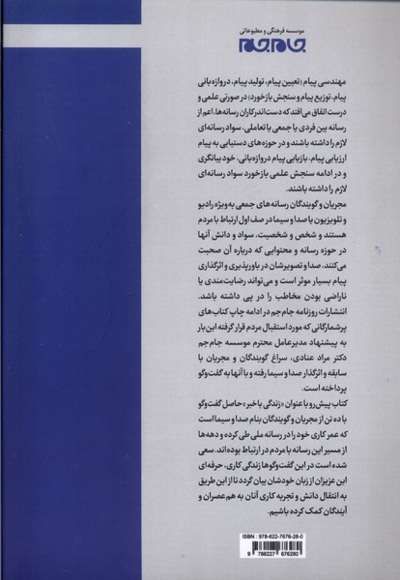 موسسه فرهنگی و مطبوعاتی
جام‌جم
مهندسی پیام (تعیین پیام، تولید پیام، دروازه‌بانی
پیام، توزیع پیام و سنجش بازخورد) در صورتی علمی و
درست اتفاق می‌افتد که دست‌اندرکاران رسانه‌ها، اعم از
رسانه بین فردی یا جمعی یا تعاملی، سواد رسانه‌ای
لازم را داشته باشند و در حوزه‌های دستیابی به پیام
ارزیابی پیام، بازیابی پیام دروازه‌بانی، خود بیانگری
و در ادامه سنجش علمی بازخورد سواد رسانه‌ای
لازم را داشته باشند.
مجریان و گویندگان رسانه‌های جمعی به‌ویژه رادیو
و تلویزیون یا صدا و سیما در صف اول ارتباط با مردم
هستند و شخص و شخصیت، سواد و دانش آنها
در حوزه رسانه و محتوایی که درباره آن صحبت
می‌کنند، صدا و تصویرشان در باورپذیری و اثرگذاری
پیام بسیار موثر است و می‌تواند رضایت‌مندی یا
ناراضی بودن مخاطب را در پی داشته باشد.
انتشارات روزنامه جام‌جم در ادامه چاپ کتاب‌های
پرشمارگانی که مورد استقبال مردم قرار گرفته این بار
به پیشنهاد مدیرعامل محترم موسسه جام‌جم
دکتر مراد عنادی، سراغ گویندگان و مجریان با
سابقه و اثرگذار صدا و سیما رفته و با آنها به گفت‌وگو
پرداخته است.
کتاب پیش‌رو با عنوان «زندگی با خبر» حاصل گفت‌وگو
با ده تن از مجریان و گویندگان بنام صدا و سیما است
که عمر کاری خود را در رسانه ملی طی کرده و دهه‌ها
از مسیر این رسانه با مردم در ارتباط بوده‌اند. سعی
شده است در این گفت‌وگوها زندگی کاری، حرفه‌ای
این عزیزان از زبان خودشان بیان گردد تا از این طریق
به انتقال دانش و تجربه کاری آنان به هم‌عصران و
آیندگان کمک کرده باشیم.
ISBN : 978-622-7676-28-0
9 786227 676280